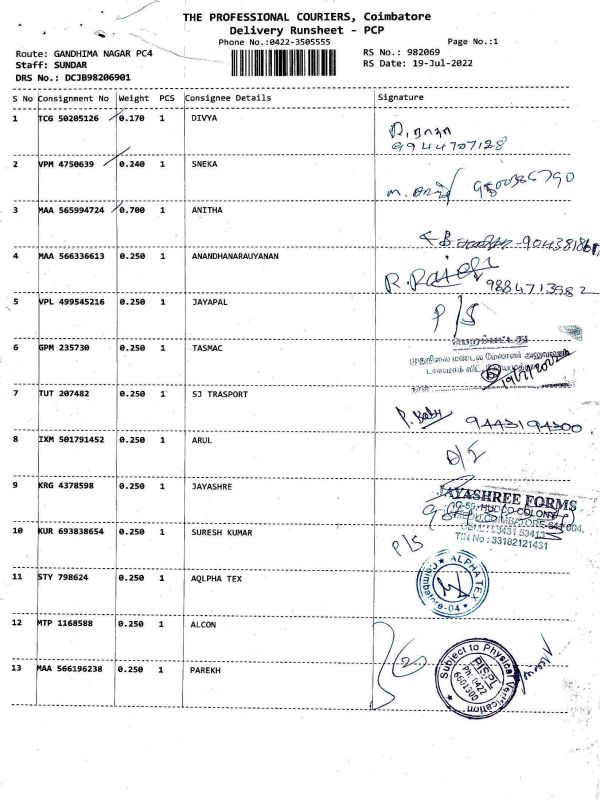 THE PROFESSIONAL COURIERS, Coimbatore
Delivery Runsheet - PCP
Phone No.:0422-3505555
Page No.:1
Route: GANDHIMA NAGAR PC4
RS No.: 982069
Staff: SUNDAR
RS Date: 19-Jul-2022
DRS No.: DCJB98206901
S No Consignment No Weight PCS Consignee Details Signature
1 TCG 50205126 0.170 1 DIVYA
9944707128
2 VPM 4750639 0.240 1 SNEKA
3 MAA 565994724 0.700 1 ANITHA
4 MAA 566336613 0.250 1 ANANDHANARAUYANAN
9884713982
5 VPL 499545216 0.250 1 JAYAPAL
P/S
6 GPM 235730 0.250 1 TASMAC
7 TUT 207482 0.250 1 SJ TRASPORT
P. Baby 9443194300
8 IXM 501791452 0.250 1 ARUL
9 KRG 4378598 0.250 1 JAYASHRE
JAYASHREE FORMS
TIN No : 33182121431
10 KUR 693838654 0.250 1 SURESH KUMAR
P/S
11 STY 798624 0.250 1 AQLPHA TEX
ALPHA TEX
Coimbatore-04
12 MTP 1168588 0.250 1 ALCON
13 MAA 566196238 0.250 1 PAREKH
Subject to Physical Verification
Ph: 0422
6601300